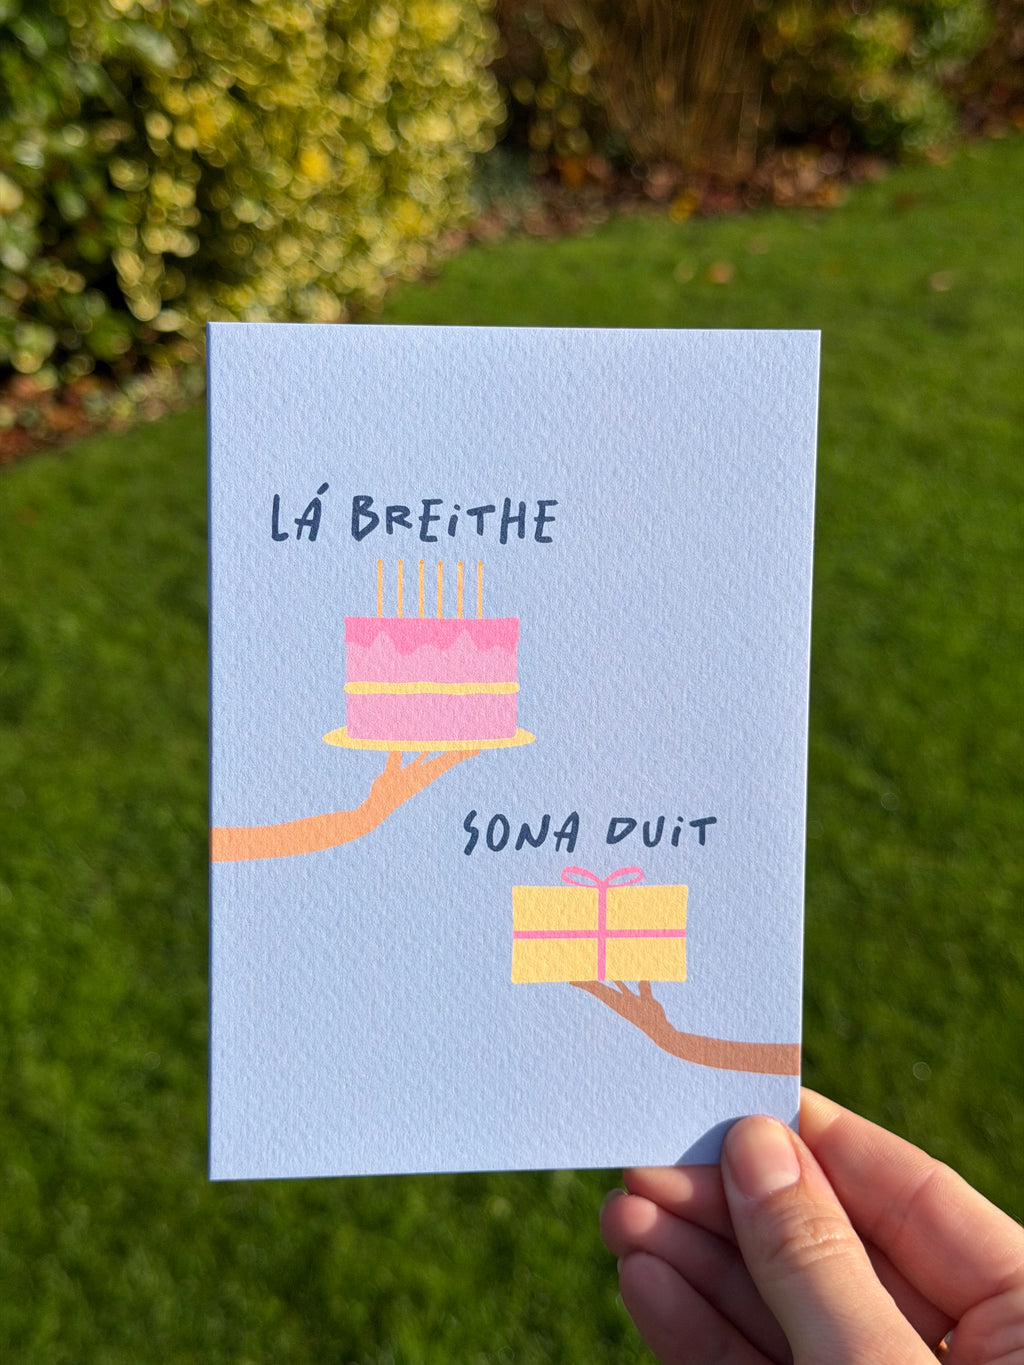 LÁ BREITHE
SONA DUIT